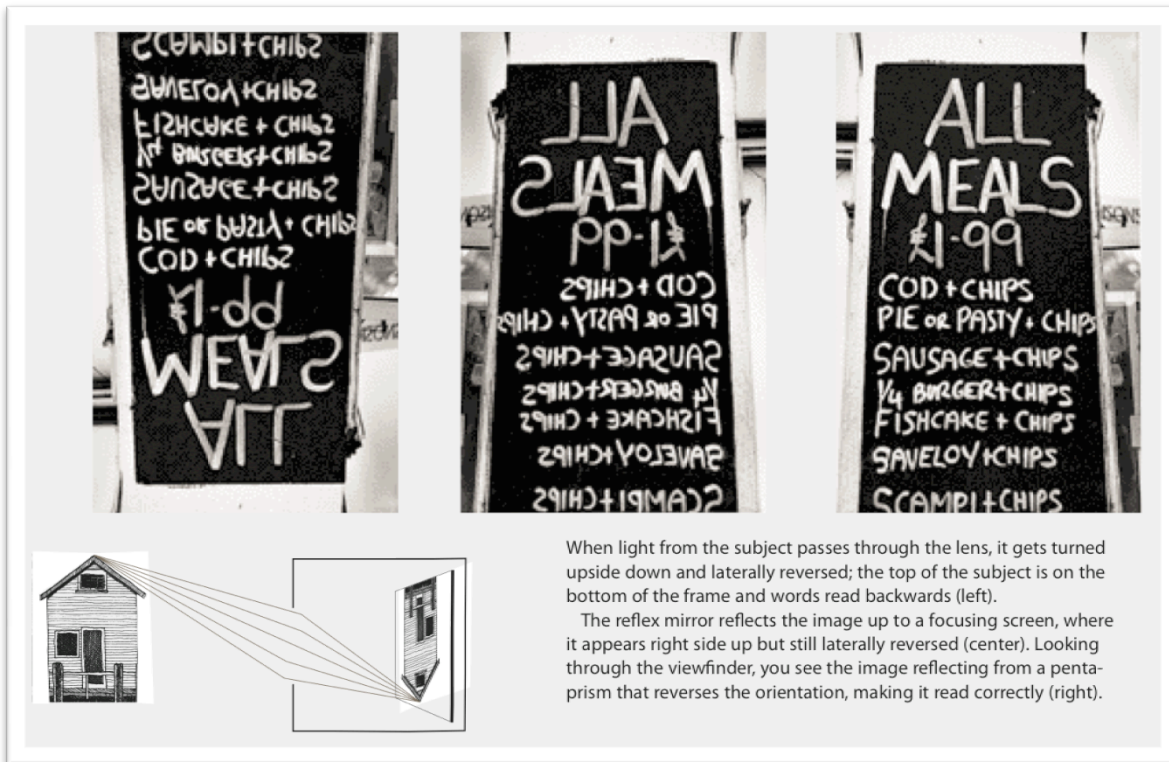 ALL
MEALS
£1-99
COD + CHIPS
PIE OR PASTY + CHIPS
SAUSAGE + CHIPS
¼ BURGER + CHIPS
FISHCAKE + CHIPS
SAVELOY + CHIPS
SCAMPI + CHIPS
ALL
MEALS
£1-99
COD + CHIPS
PIE OR PASTY + CHIPS
SAUSAGE + CHIPS
¼ BURGER + CHIPS
FISHCAKE + CHIPS
SAVELOY + CHIPS
SCAMPI + CHIPS
ALL
MEALS
£1-99
COD + CHIPS
PIE OR PASTY + CHIPS
SAUSAGE + CHIPS
¼ BURGER + CHIPS
FISHCAKE + CHIPS
SAVELOY + CHIPS
SCAMPI + CHIPS
When light from the subject passes through the lens, it gets turned
upside down and laterally reversed; the top of the subject is on the
bottom of the frame and words read backwards (left).
The reflex mirror reflects the image up to a focusing screen, where
it appears right side up but still laterally reversed (center). Looking
through the viewfinder, you see the image reflecting from a penta-
prism that reverses the orientation, making it read correctly (right).